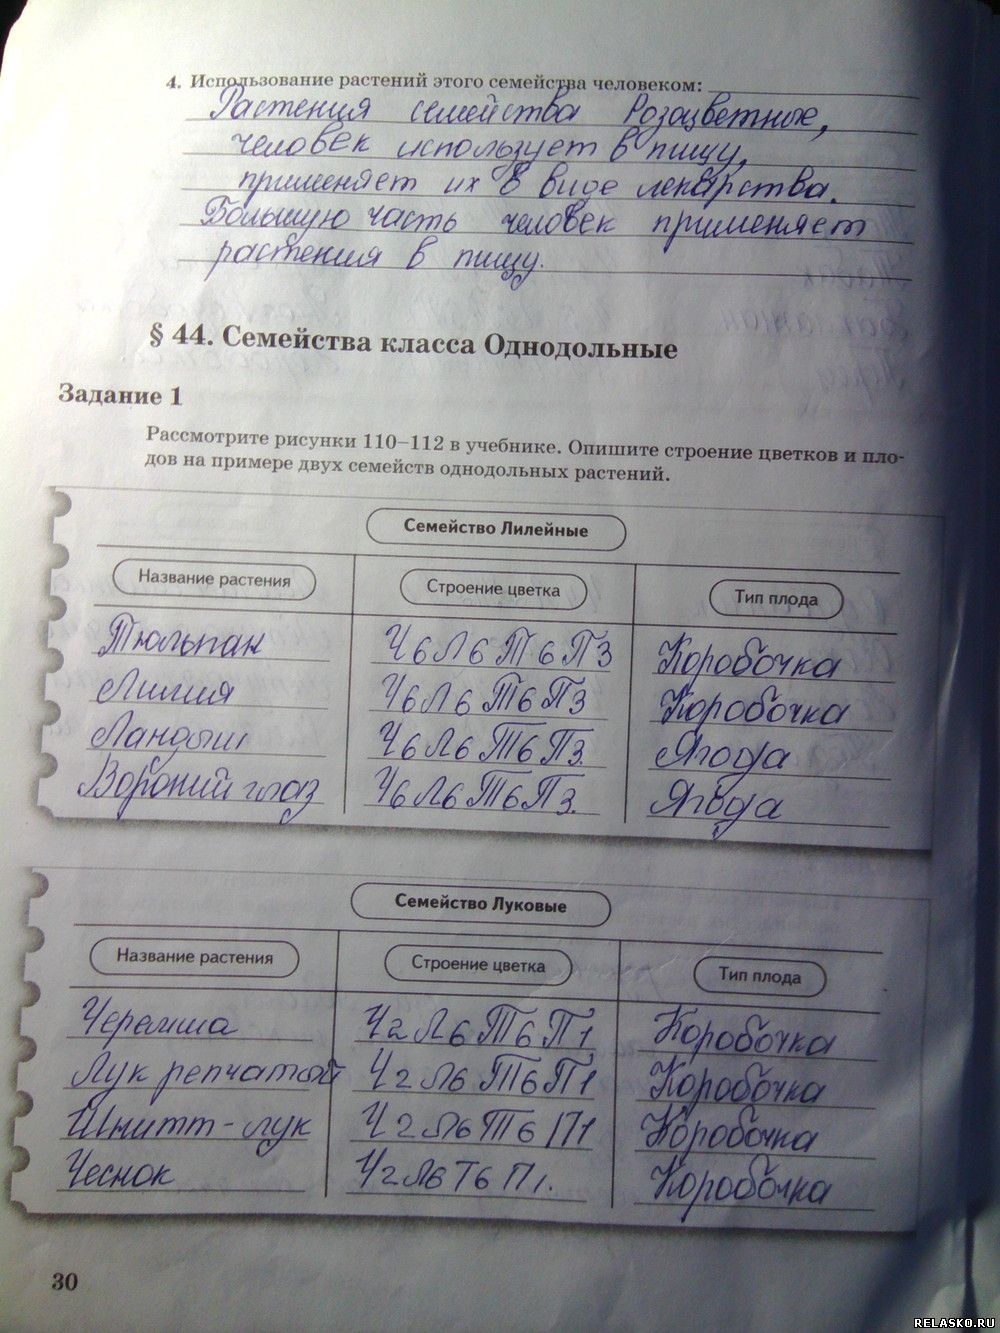 4. Использование растений этого семейства человеком:
Растения семейства Розоцветные,
человек использует в пищу,
применяет их в виде лекарства.
Большую часть человек применяет
растения в пищу.
§ 44. Семейства класса Однодольные
Задание 1
Рассмотрите рисунки 110–112 в учебнике. Опишите строение цветков и пло-
дов на примере двух семейств однодольных растений.
Семейство Лилейные
Название растения Строение цветка Тип плода
Тюльпан Ч6Л6Т6П3 Коробочка
Лилия Ч6Л6Т6П3 Коробочка
Ландыш Ч6Л6Т6П3. Ягода
Вороний глаз Ч6Л6Т6П3. Ягода
Семейство Луковые
Название растения Строение цветка Тип плода
Черемша Ч2Л6Т6П1 Коробочка
Лук репчатый Ч2Л6Т6П1 Коробочка
Шнитт-лук Ч2Л6Т6П1 Коробочка
Чеснок Ч2Л6Т6П1. Коробочка
30
RELASKO.RU